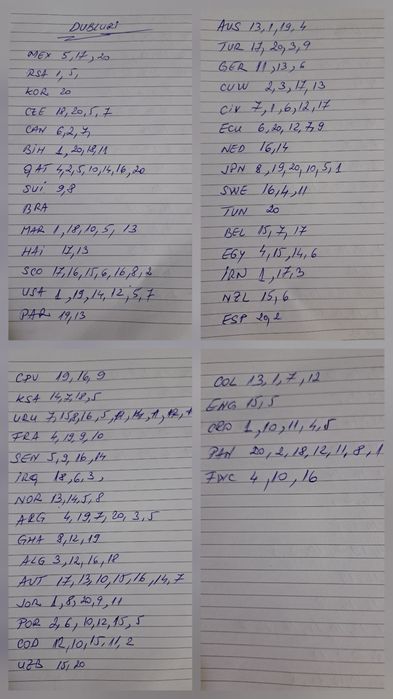 DUBLURI
MEX 5,17,20
RSA 1,5,
KOR 20
CZE 18,20,5,7
CAN 6,2,7,
BIH 1,20,18,11
QAT 4,2,5,10,14,16,20
SUI 9,8
BRA
MAR 1,18,10,5, 13
HAI 17,13
SCO 17,16,15,6,16,8,2
USA 1,19,14,12,5,7
PAR 19,13
AUS 13,1,19,4
TUR 17,20,3,9
GER 11,13,6
CUW 2,3,17,13
CIV 7,1,6,12,17
ECU 6,20,12,7,9
NED 16,14
JPN 8,19,20,10,5,1
SWE 16,4,11
TUN 20
BEL 15,7,17
EGY 4,15,14,6
IRN 1,17,3
NZL 15,6
ESP 20,2
CPV 19,16,9
KSA 14,7,18,5
URU 7,15,8,16,5
FRA 4,19,9,10
SEN 5,9,16,14
IRQ 18,6,3,
NOR 13,14,5,8
ARG 4,19,7,20,3,5
GHA 8,12,19
ALG 3,12,16,18
AUT 17,13,10,15,16,14,7
JOR 1,8,20,9,11
POR 2,6,10,12,15,5
COD 12,10,15,11,2
UZB 15,20
COL 13,1,7,12
ENG 15,5
CRO 1,10,11,4,5
PAN 20,2,18,12,11,8,1
FWC 4,10,16